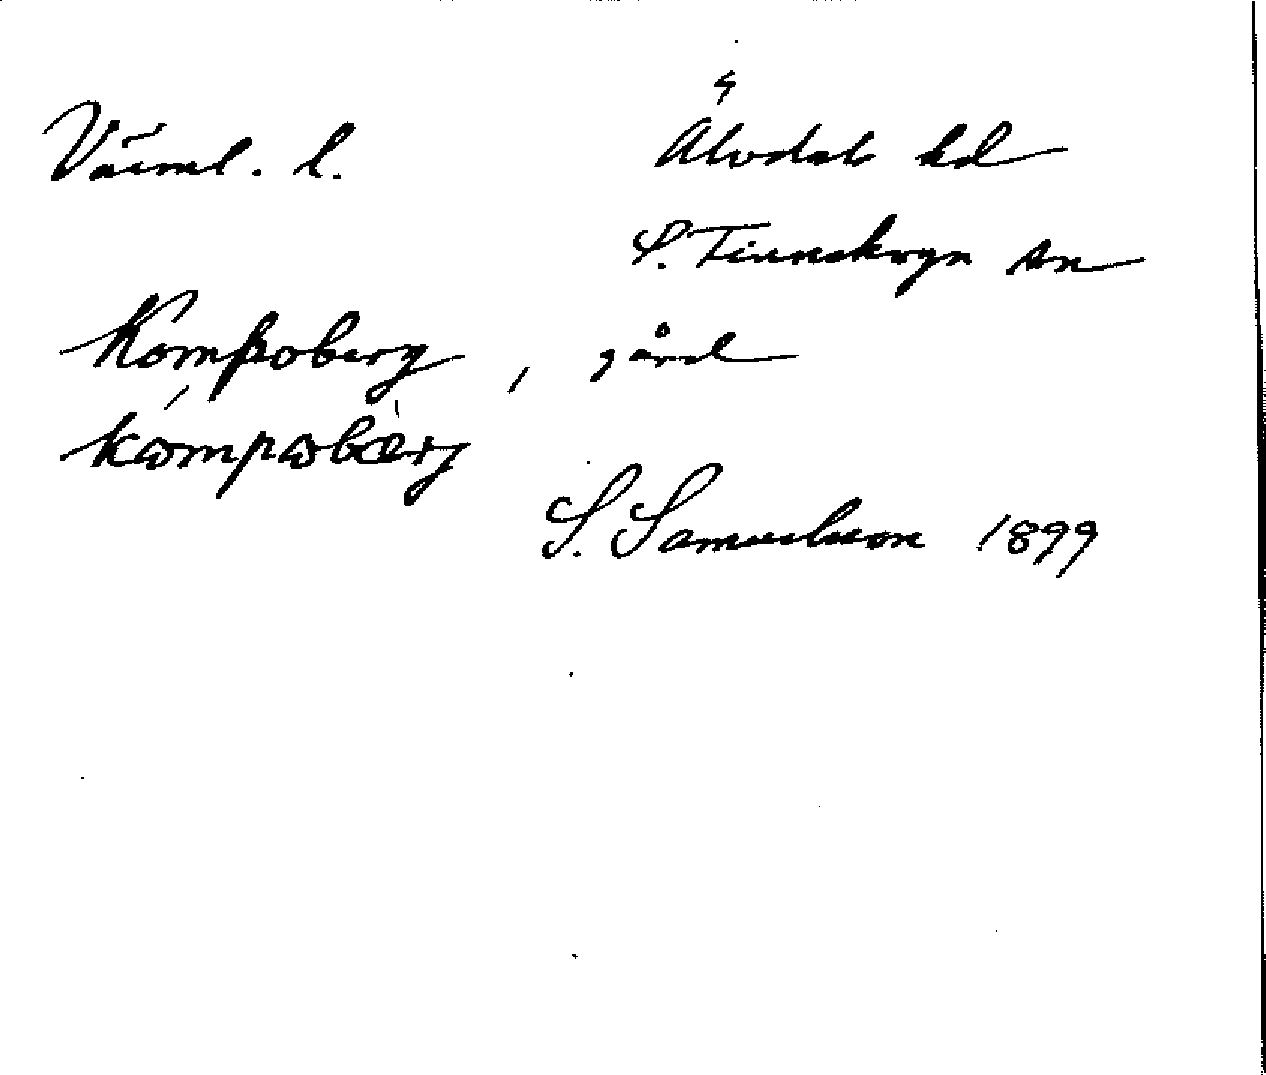 Värml. l. Älvdals hd
S. Finnskoga sn
Kompoberg, gård
kǻmpωbæ̀rg
S. Samuelsson 1899